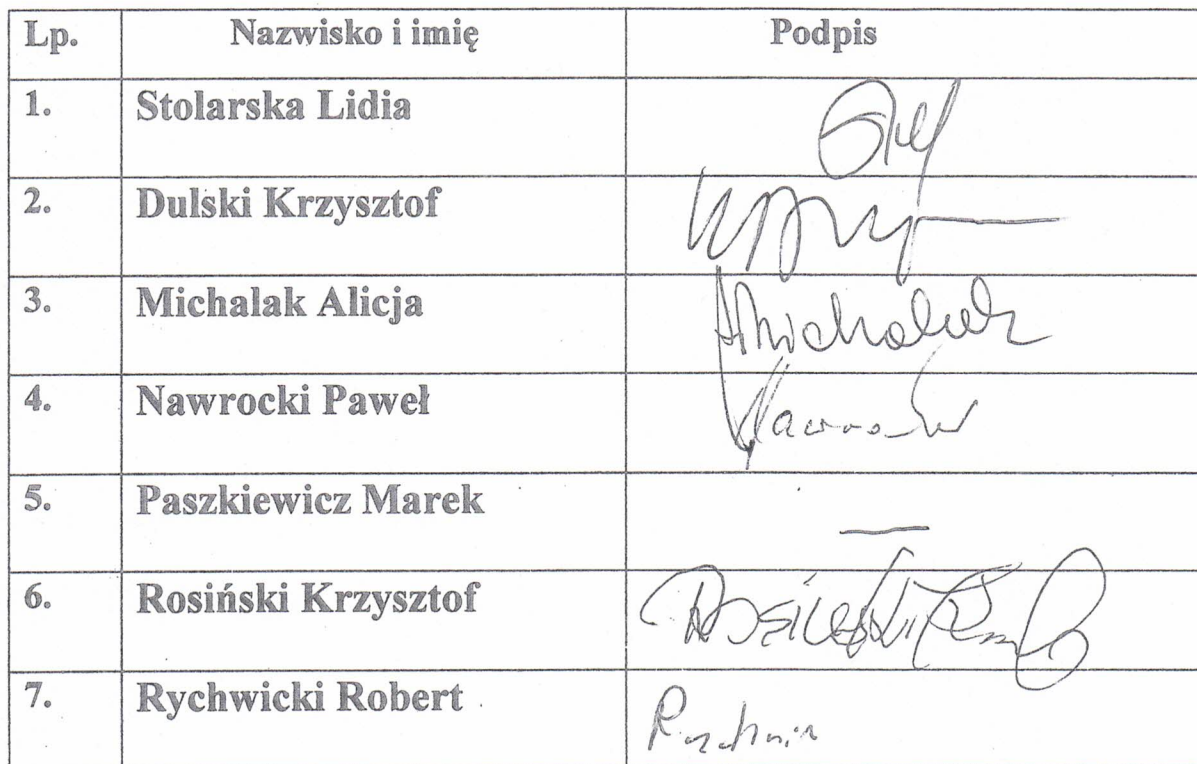 Lp. Nazwisko i imię Podpis
1. Stolarska Lidia
2. Dulski Krzysztof
3. Michalak Alicja AMichalak
4. Nawrocki Paweł
5. Paszkiewicz Marek —
6. Rosiński Krzysztof
7. Rychwicki Robert